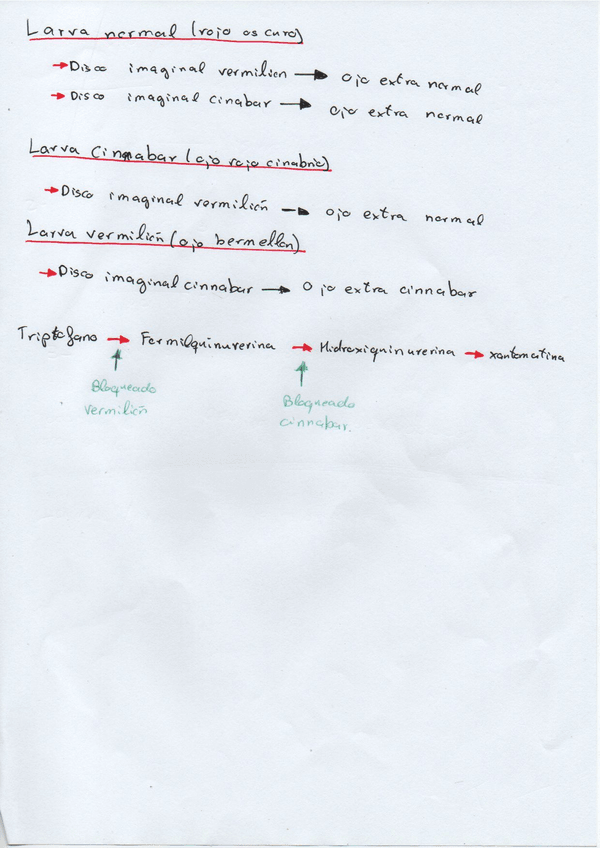 Larva normal (rojo oscuro)
→ Disco imaginal vermilion → ojo extra normal
→ Disco imaginal cinabar → ojo extra normal
Larva Cinnabar (ojo rojo cinabrio)
→ Disco imaginal vermilión → ojo extra normal
Larva vermilión (ojo bermellón)
→ Disco imaginal cinnabar → Ojo extra cinnabar
Triptofano → Formilquinurerina → Hidroxiquinurerina → xantomatina
Bloqueado vermilión
Bloqueado cinnabar.